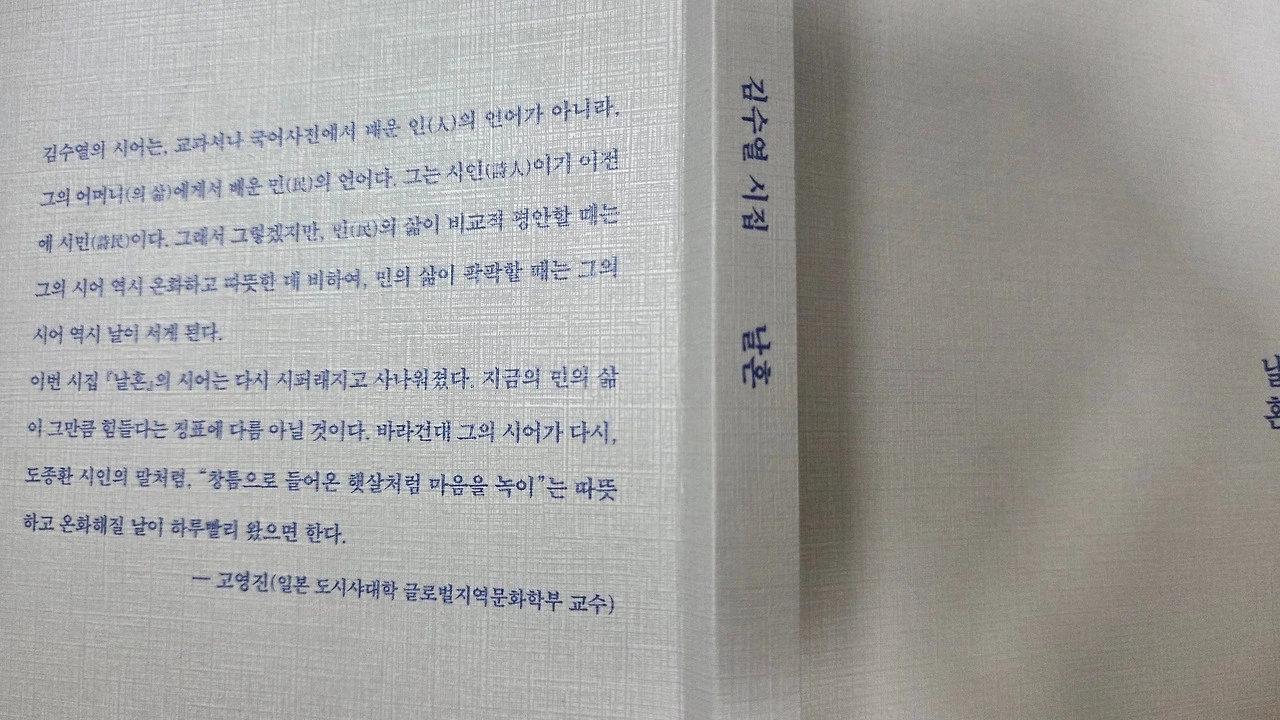 김수열의 시어는, 교과서나 국어사전에서 배운 인(人)의 언어가 아니라,
그의 어머니(의 삶)에게서 배운 민(民)의 언어다. 그는 시인(詩人)이기 이전
에 시민(詩民)이다. 그래서 그렇겠지만, 민(民)의 삶이 비교적 평안할 때는
그의 시어 역시 온화하고 따뜻한 데 비하여, 민의 삶이 팍팍할 때는 그의
시어 역시 날이 서게 된다.
이번 시집 『날혼』의 시어는 다시 시퍼래지고 사나워졌다. 지금의 민의 삶
이 그만큼 힘들다는 징표에 다름 아닐 것이다. 바라건대 그의 시어가 다시,
도종환 시인의 말처럼, “창틈으로 들어온 햇살처럼 마음을 녹이”는 따뜻
하고 온화해질 날이 하루빨리 왔으면 한다.
― 고영진(일본 도시샤대학 글로벌지역문화학부 교수)
김수열 시집 날혼